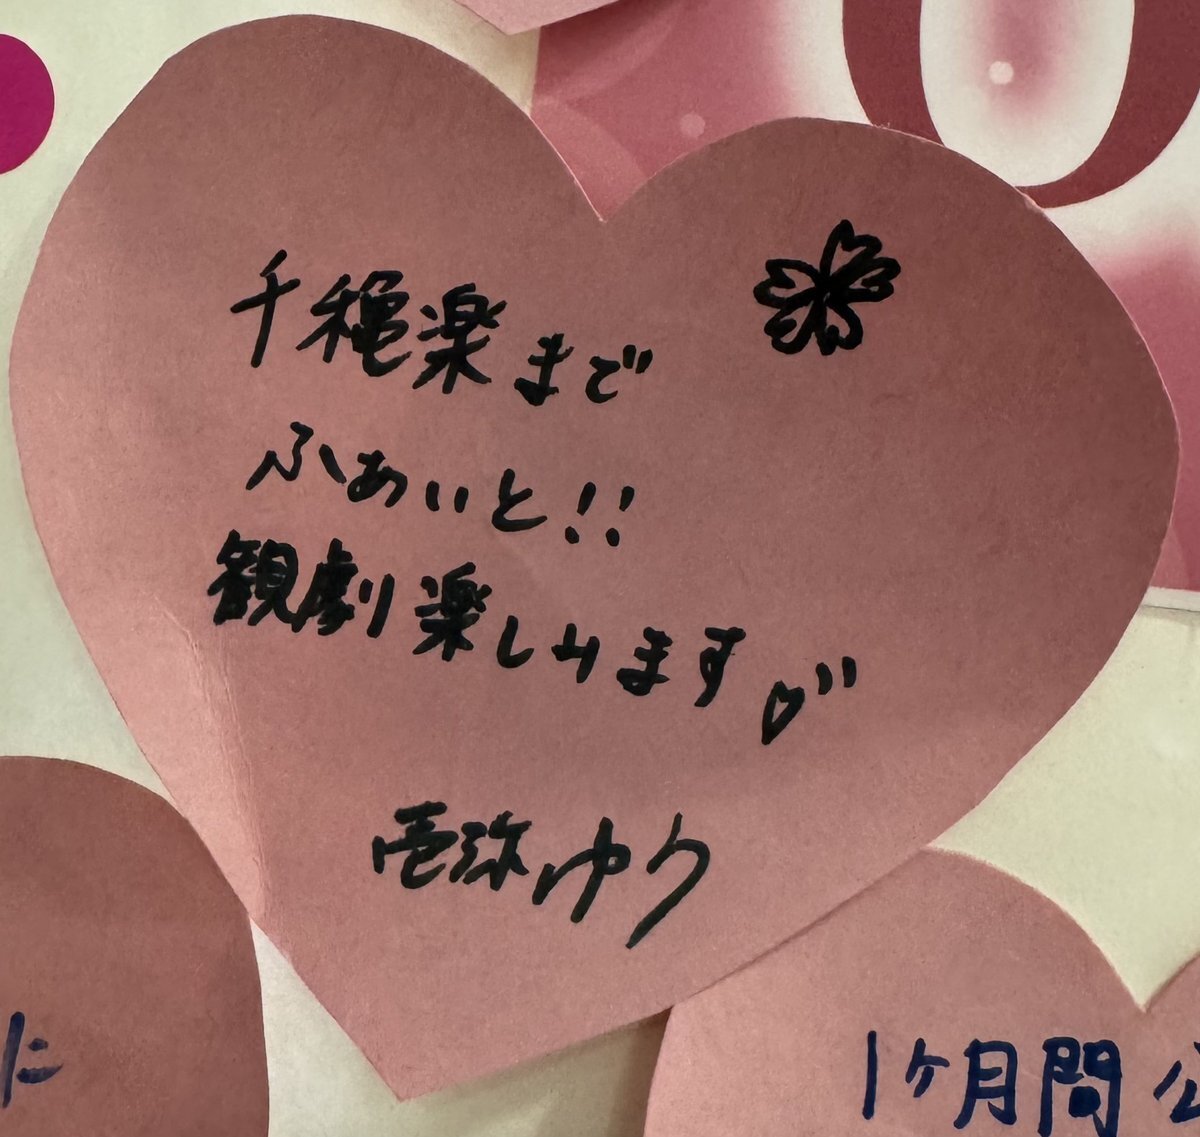 千穐楽まで
ふぁいと!!
観劇楽しみます♡"
壱弥ゆう
に
1ヶ月間公